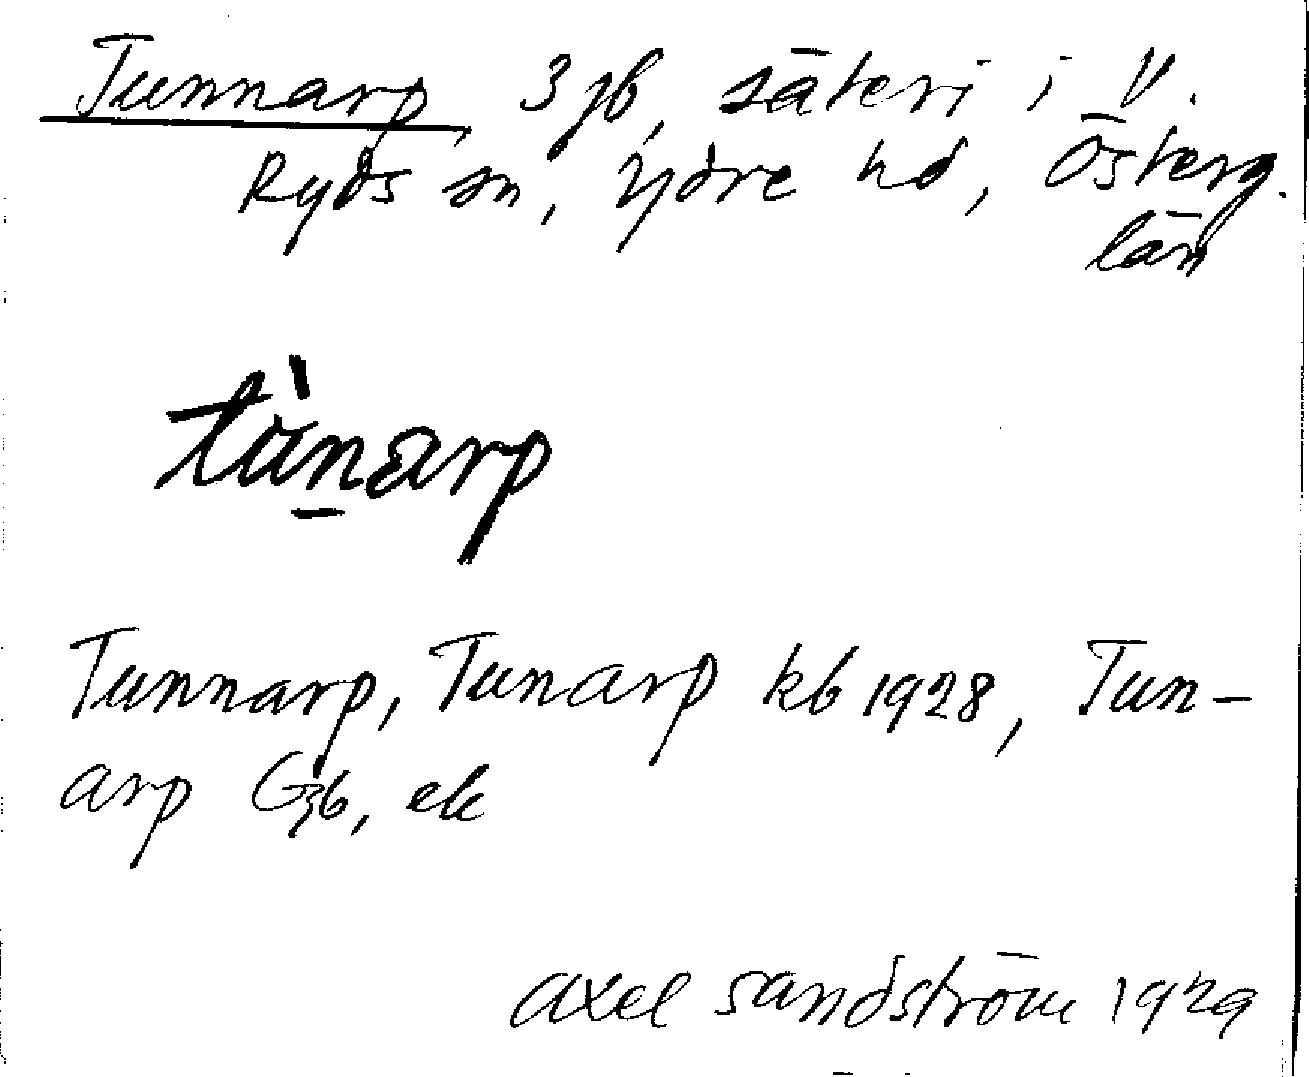 Tunnarp, 3 gb, säteri i V.
Ryds sn, Ydre hd, Österg.
län
tùn̲arp
Tunnarp, Tunarp kb 1928, Tun-
arp Gzb, ek
Axel Sandström 1929